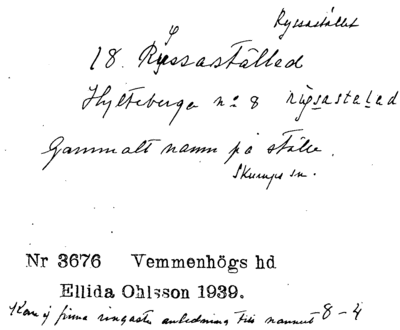 Ryssastället
18. Ryssastället
Hylteberga no 8 rụ̀sastaḷad
Gammalt namn på ställe.
Skurups sn.
Nr 3676 Vemmenhögs hd
Ellida Ohlsson 1939.
Kan ej finna ringaste anledning till namnet 8-4